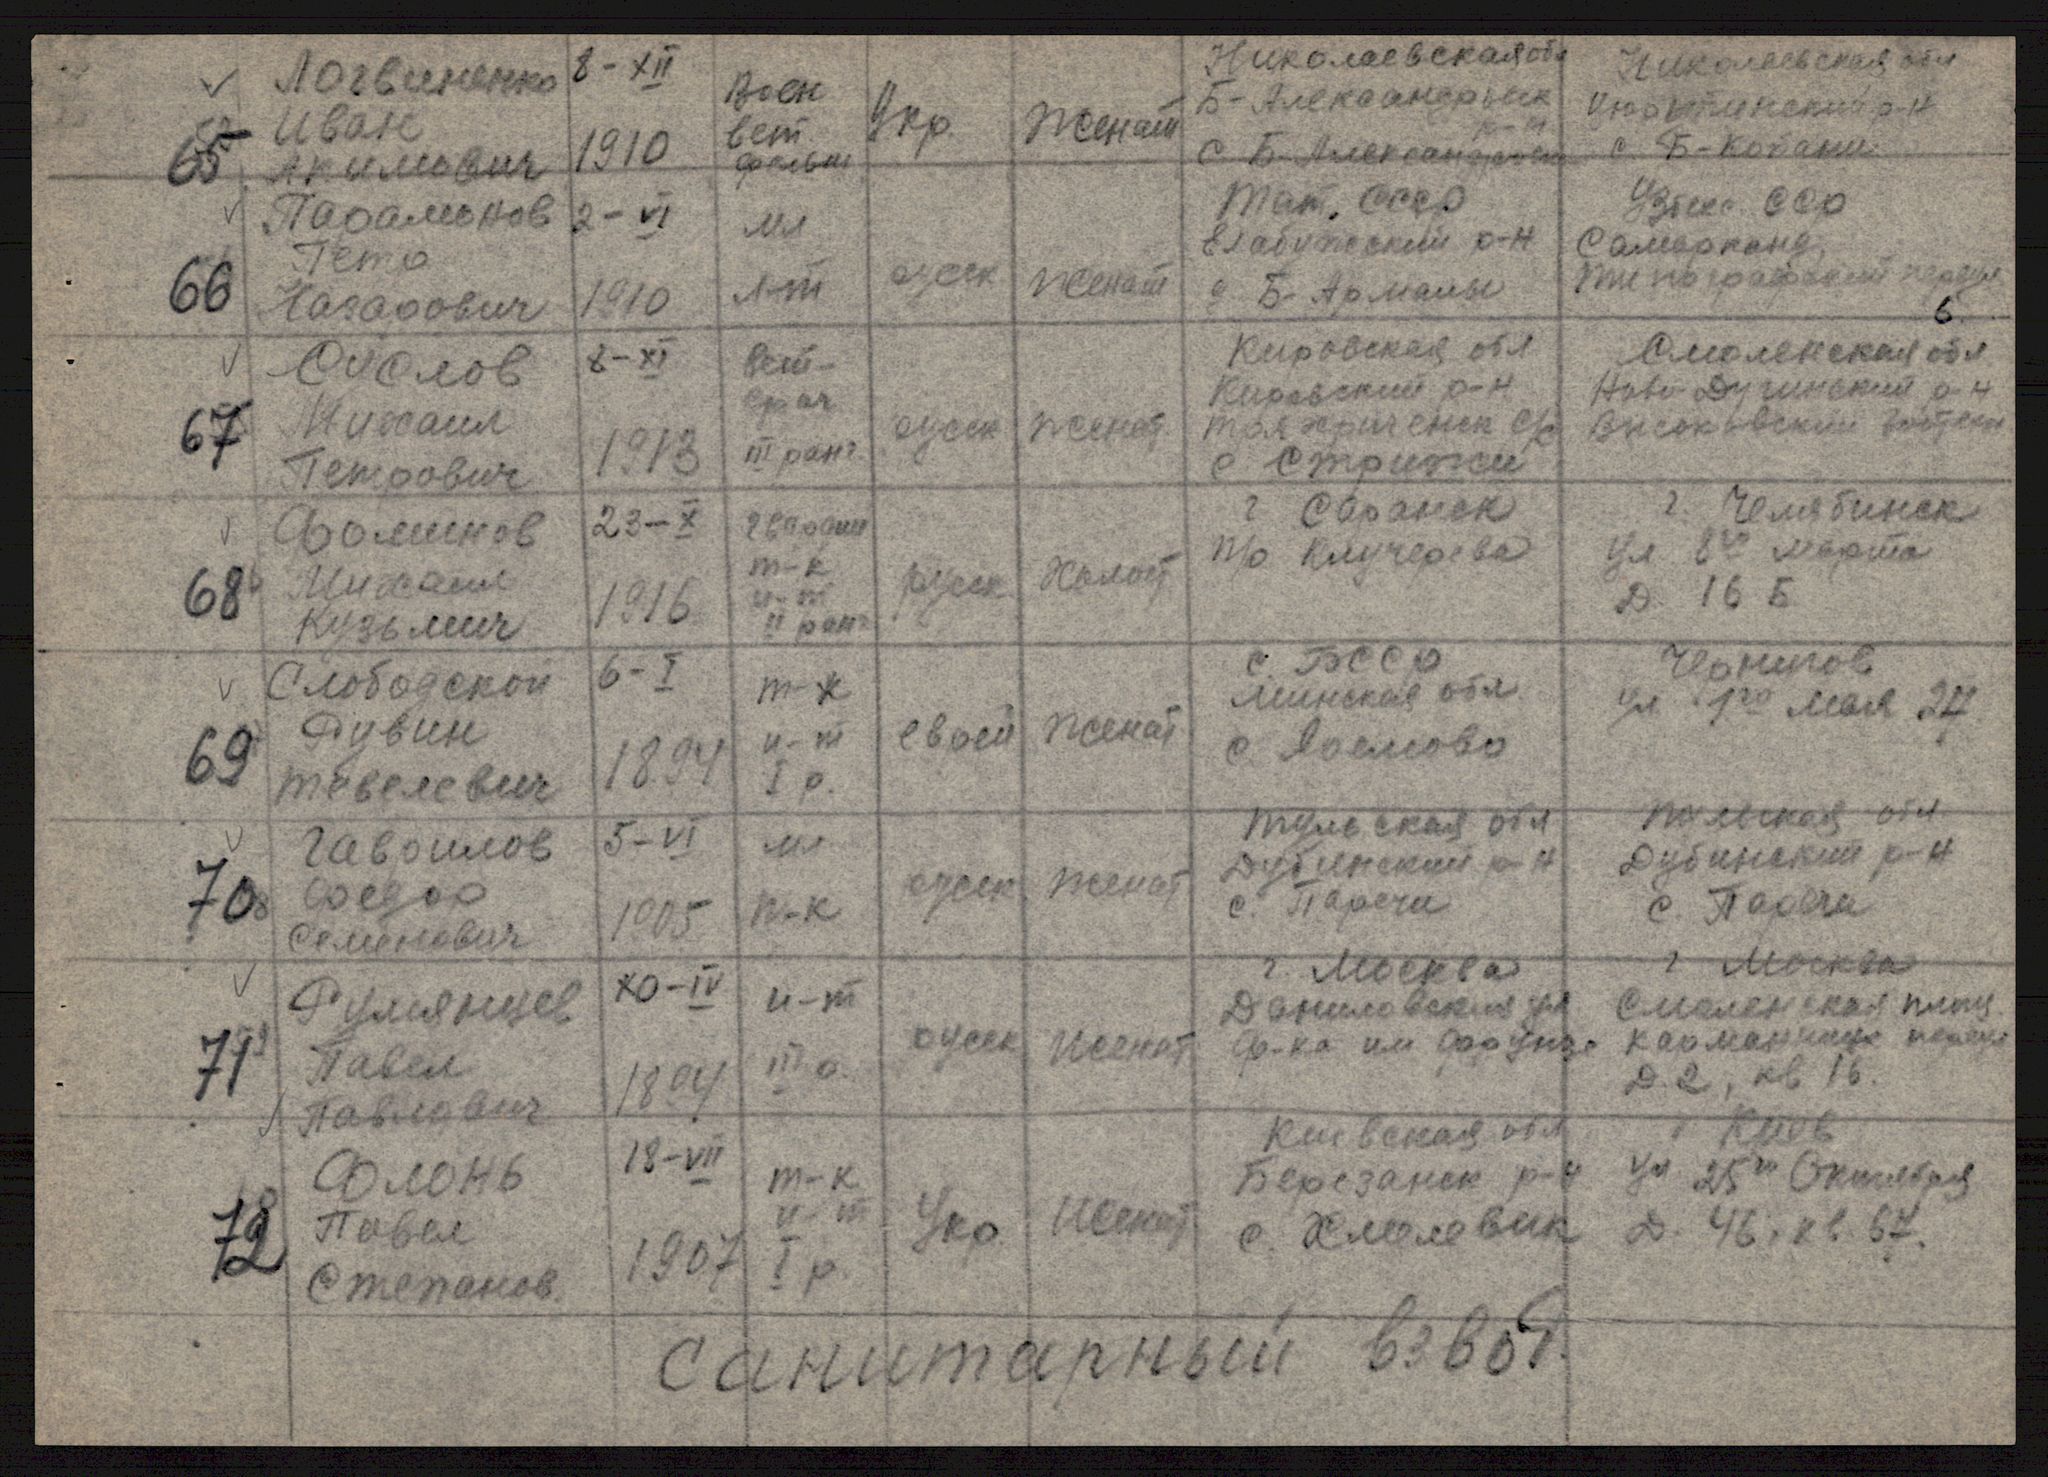 65 Логвиненко Иван Акимович 8-XII 1910 Воен вет фельш Укр. Женат Николаевская обл Б-Александрьск р-н с Б-Александровка Николаевская обл р-н с Б-Копани
66 Парамонов Петр Назарович 2-VI 1910 мл л-т русск Женат Тат. СССР Елабужский р-н с Б-Армалы Узбек. ССР Самарканд Типографский переул 6
67 Суслов Михаил Петрович 8-XI 1913 Вет-врач III ранг русск Женат Кировская обл Кировский р-н с/с с Стрижи Смоленская обл Ново-Дугинский р-н Высоковский
68 Фоминов Михаил Кузьмич 23-X 1916 гвардии т-к и-т II ранг русск Холост г Саранск п/о Клучерева г. Челябинск ул 8го марта Д. 16 Б
69 Слободской Рувин Тевелевич 6-I 1894 т-к и-т I р. еврей Женат с. БССР Минская обл с. Чернигов ул 1го мая 27
70 Гаврилов Федор Семенович 5-VI 1905 мл т-к русск Женат Тульская обл Дубинский р-н с. Паречи Тульская обл Дубинский р-н с. Паречи
71 Румянцев Павел Павлович 10-IV 1894 и-т III р. русск Женат г Москва Даниловская ул ф-ка им Фрунзе г Москва Смоленская площ переул Д. 2, кв 16.
72 Флонь Павел Степанов. 18-VII 1907 т-к и-т I р. Укр Женат Киевская обл Березанск р-н с. Хмелевик г Киев ул 25го Октября Д. 46, кв. 67.
Санитарный взвод.